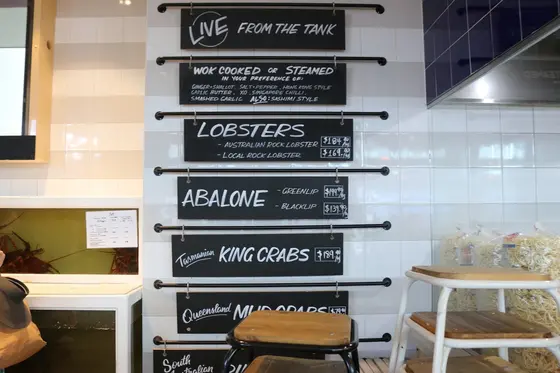 LIVE FROM THE TANK
WOK COOKED OR STEAMED
IN YOUR PREFERENCE OF:
GINGER+SHALLOT, SALT+PEPPER, HONG KONG STYLE
GARLIC BUTTER, XO, SINGAPORE CHILLI,
SMASHED GARLIC ALSO: SASHIMI STYLE
LOBSTERS
- AUSTRALIAN ROCK LOBSTER $184
- LOCAL ROCK LOBSTER $169
ABALONE - GREENLIP
- BLACKLIP $139
Tasmanian KING CRABS $189
Queensland MUD CRABS
South
Australian